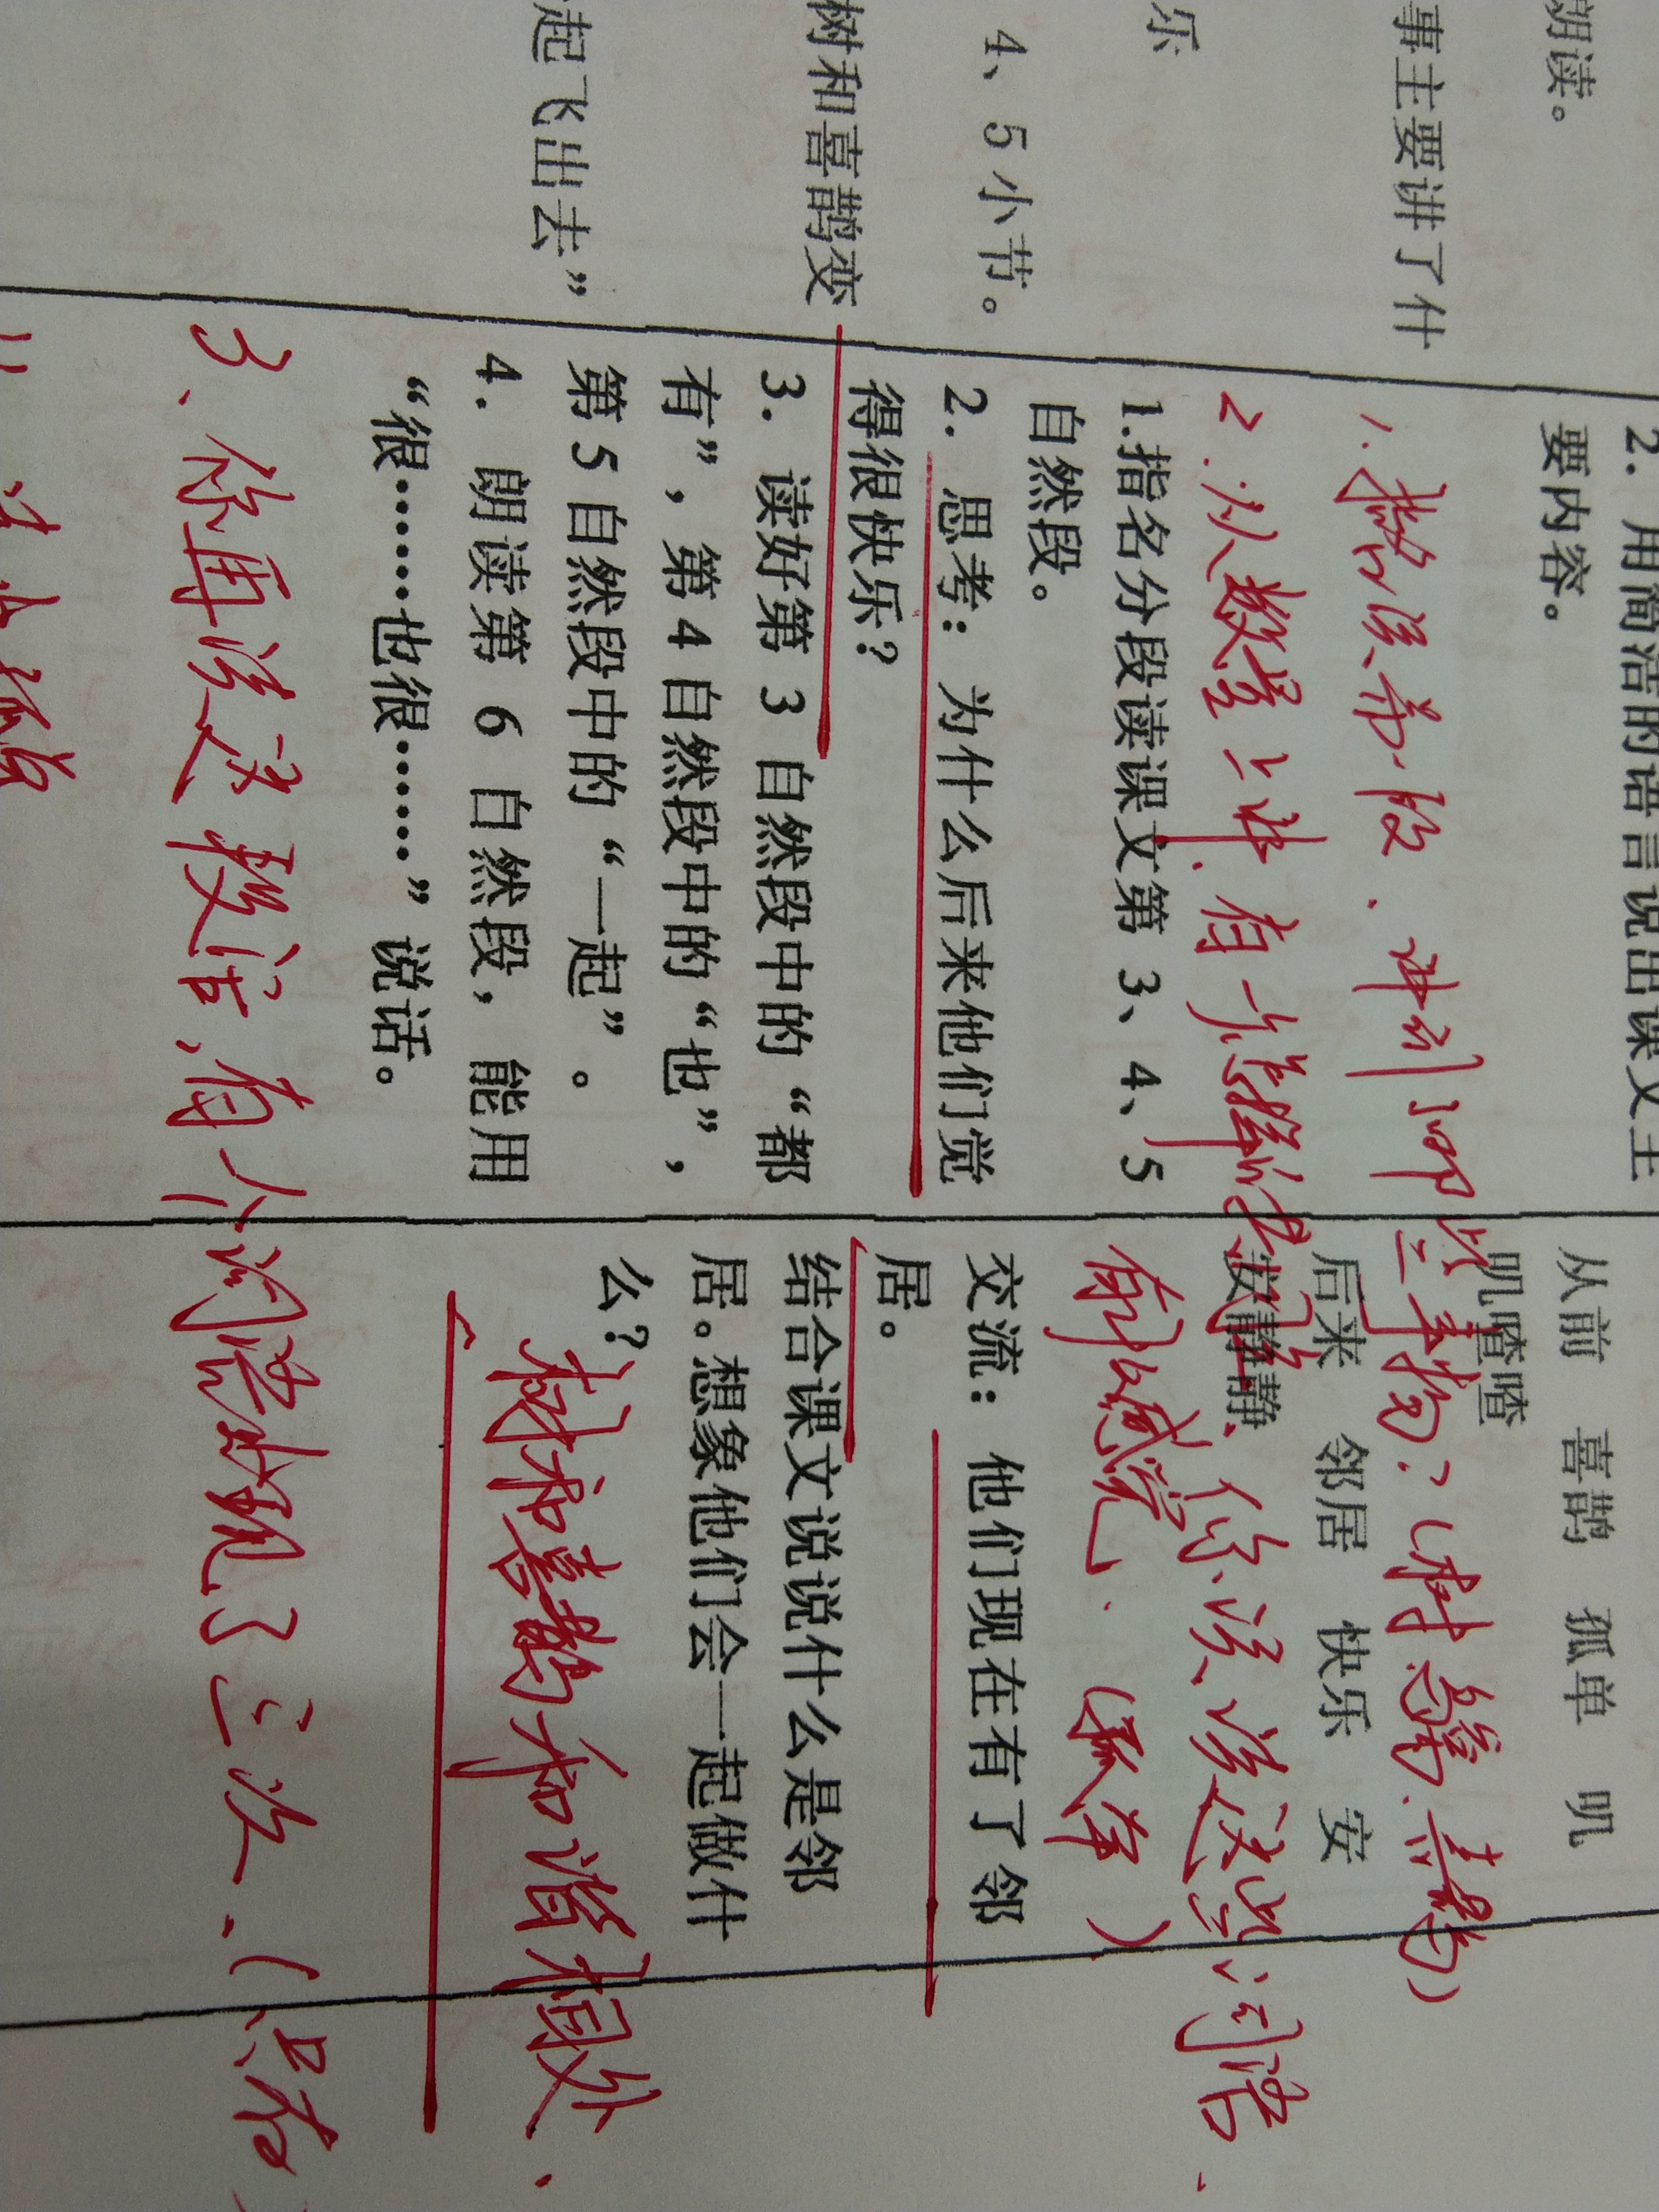 朗读。
事主要讲了什
乐
4、5小节。
树和喜鹊变
起飞出去”
2. 用简洁的语言说出课文主
要内容。
1.
段.讲到哪些事物?(树.鸟窝.喜鹊)
2.从数量上讲.有
你读读这些词语.
有啥感觉.(孤单)
1.指名分段读课文第 3、4、5
自然段。
2. 思考：为什么后来他们觉
得很快乐？
3. 读好第 3 自然段中的“都
有”，第 4 自然段中的“也”，
第 5 自然段中的“一起”。
4. 朗读第 6 自然段，能用
“很……也很……”说话。
3、你再读这段话,有个词语出现了三次.(只有
从前 喜鹊 孤单 叽
叽喳喳
后来 邻居 快乐 安
安静静
交流：他们现在有了邻
居。
结合课文说说什么是邻
居。想象他们会一起做什
么？
树和喜鹊和谐相处.